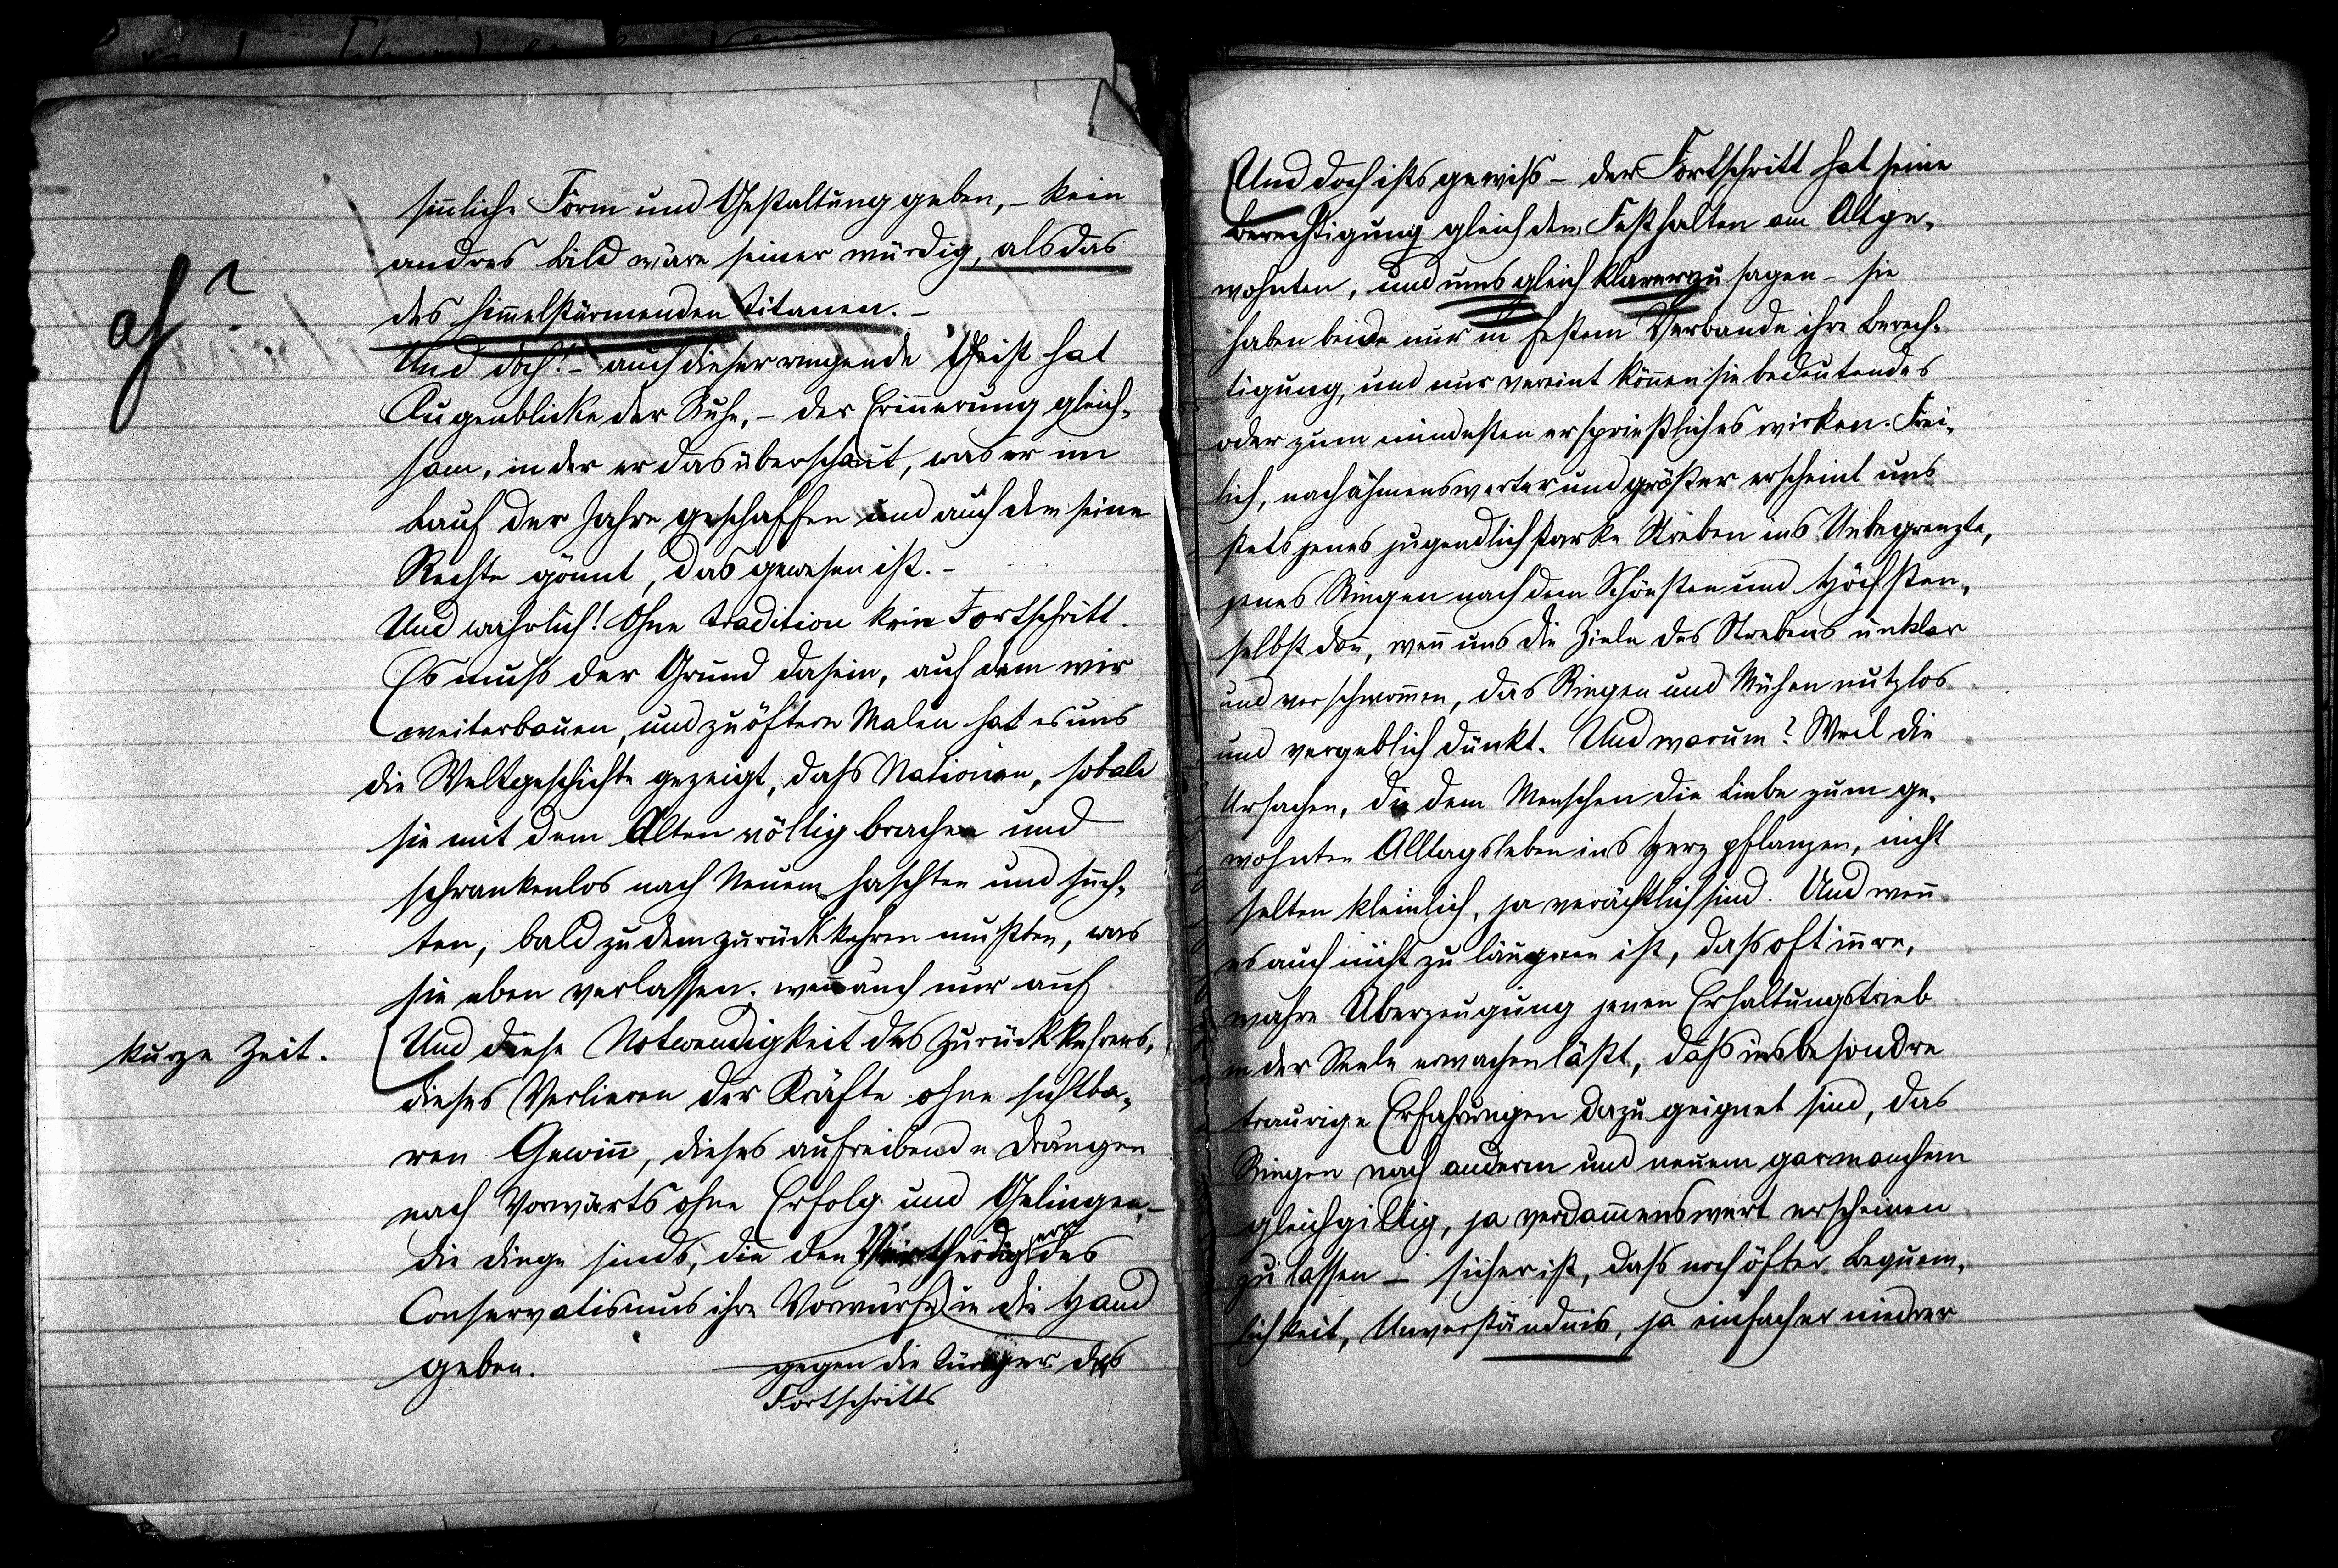 sinnliche Form und Gestaltung geben, – kein
andres Bild wäre seiner würdig, als das
des himmelstürmenden Titanen. –
Und doch! – auch dieser ringende Geist hat
Augenblicke der Ruhe, – der Erinnerung gleich-
sam, in der er das überschaut, was er im
Lauf der Jahre geschaffen und auch dem seine
Rechte gönnt, das gewesen ist. –
Und wahrlich! Ohne Tradition kein Fortschritt.
Es muß der Grund dasein, auf dem wir
weiterbauen, und zu öftern Malen hat es uns
die Weltgeschichte gezeigt, daß Nationen, sobald
sie mit dem Alten völlig brachen und
schrankenlos nach Neuem haschten und such-
ten, bald zu dem zurückkehren mußten, was
sie eben verlassen. wenn auch nur auf
kurze Zeit.
Und diese Notwendigkeit des Zurückkehrens,
dieses Verlieren der Kräfte ohne sichtba-
ren Gewinn, dieses aufreibende Drängen
nach Vorwärts ohne Erfolg und Gelingen, –
die Dinge sinds, die den Vertheidigern des
Conservatismus ihre Vorwürfe in die Hand
geben.
gegen die des
Fortschritts
Und doch ists gewiß – der Fortschritt hat seine
Berechtigung gleich dem Festhalten am Altge-
wohnten, und ums gleich klarer zu sagen – sie
haben beide nur in festem Verbande ihre Berech-
tigung, und nur vereint können sie bedeutendes
oder zum mindesten ersprießliches wirken. Frei-
lich, nachahmenswerter und größer erscheint uns
stets jenes jugendlich starke Streben ins Unbegrenzte,
jenes Ringen nach dem Schönsten und Höchsten,
selbst dann, wenn uns die Ziele des Strebens unklar
und verschwommen, das Ringen und Mühen nutzlos
und vergeblich dünkt. Und warum? Weil die
Ursachen, die dem Menschen die Liebe zum ge-
wohnten Alltagsleben ins Herz pflanzen, nicht
selten kleinlich, ja verächtlich sind. Und wenn
es auch nicht zu läugnen ist, daß oft innre,
wahre Überzeugung jenen Erhaltungstrieb
in der Seele erwachen läßt, daß insbesondre
traurige Erfahrungen dazu geignet sind, das
Ringen nach anderm und neuem gar manchem
gleichgiltig, ja verdammenswert erscheinen
zu lassen – sicher ist, daß noch öfter Bequem-
lichkeit, Unverständnis, ja einfacher niedrer